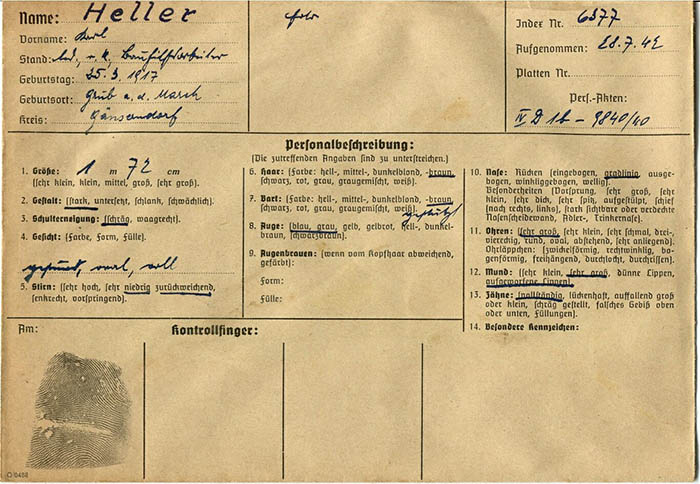 Name: Heller
Vorname: Karl
Stand: led., r. k., Bauhilfsarbeiter
Geburtstag: 25. 3. 1917
Geburtsort: Grub a. d. March
Kreis: Gänserndorf
Index Nr. 6377
Aufgenommen: 28.7.42
Platten Nr.
Pers.-Akten:
IV D 1b - 9840/40
Personalbeschreibung:
(Die zutreffenden Angaben sind zu unterstreichen.)
1. Größe: 1 m 72 cm
(sehr klein, klein, mittel, groß, sehr groß).
2. Gestalt: (stark, untersetzt, schlank, schwächlich).
3. Schulterneigung: (schräg, waagrecht).
4. Gesicht: (Farbe, Form, Fülle).
gesund, oval, voll
5. Stirn: (sehr hoch, sehr niedrig zurückweichend,
senkrecht, vorspringend).
6. Haar: (Farbe: hell-, mittel-, dunkelblond, -braun,
schwarz, rot, grau, graugemischt, weiß).
7. Bart: (Farbe: hell-, mittel-, dunkelblond, -braun,
schwarz, rot, grau, graugemischt, weiß).
8. Auge: (blau, grau, gelb, gelbrot, hell-, dunkel-
braun, schwarzbraun).
9. Augenbrauen: (wenn vom Kopfhaar abweichend,
gefärbt):
Form:
Fülle:
10. Nase: Rücken (eingebogen, gradlinig, ausge-
bogen, winkliggebogen, wellig).
Besonderheiten (Vorsprung, sehr groß, sehr
klein, sehr dick, sehr spitz, aufgestülpt, schief
(nach rechts, links), stark sichtbare oder verdeckte
Nasenscheidewand, Adler-, Trinkernase).
11. Ohren: (sehr groß, sehr klein, sehr schmal, drei-,
vierreckig, rund, oval, abstehend, sehr anliegend).
Ohrläppchen: (zwickelförmig, rechtwinklig, bo-
genförmig, freihängend, durchlocht, durchrissen).
12. Mund: (sehr klein, sehr groß, dünne Lippen,
aufgeworfene Lippen).
13. Zähne: (vollständig, lückenhaft, auffallend groß
oder klein, schräg gestellt, falsches Gebiß oben
oder unten, Füllungen).
14. Besondere Kennzeichen:
Am:
Kontrollfinger: